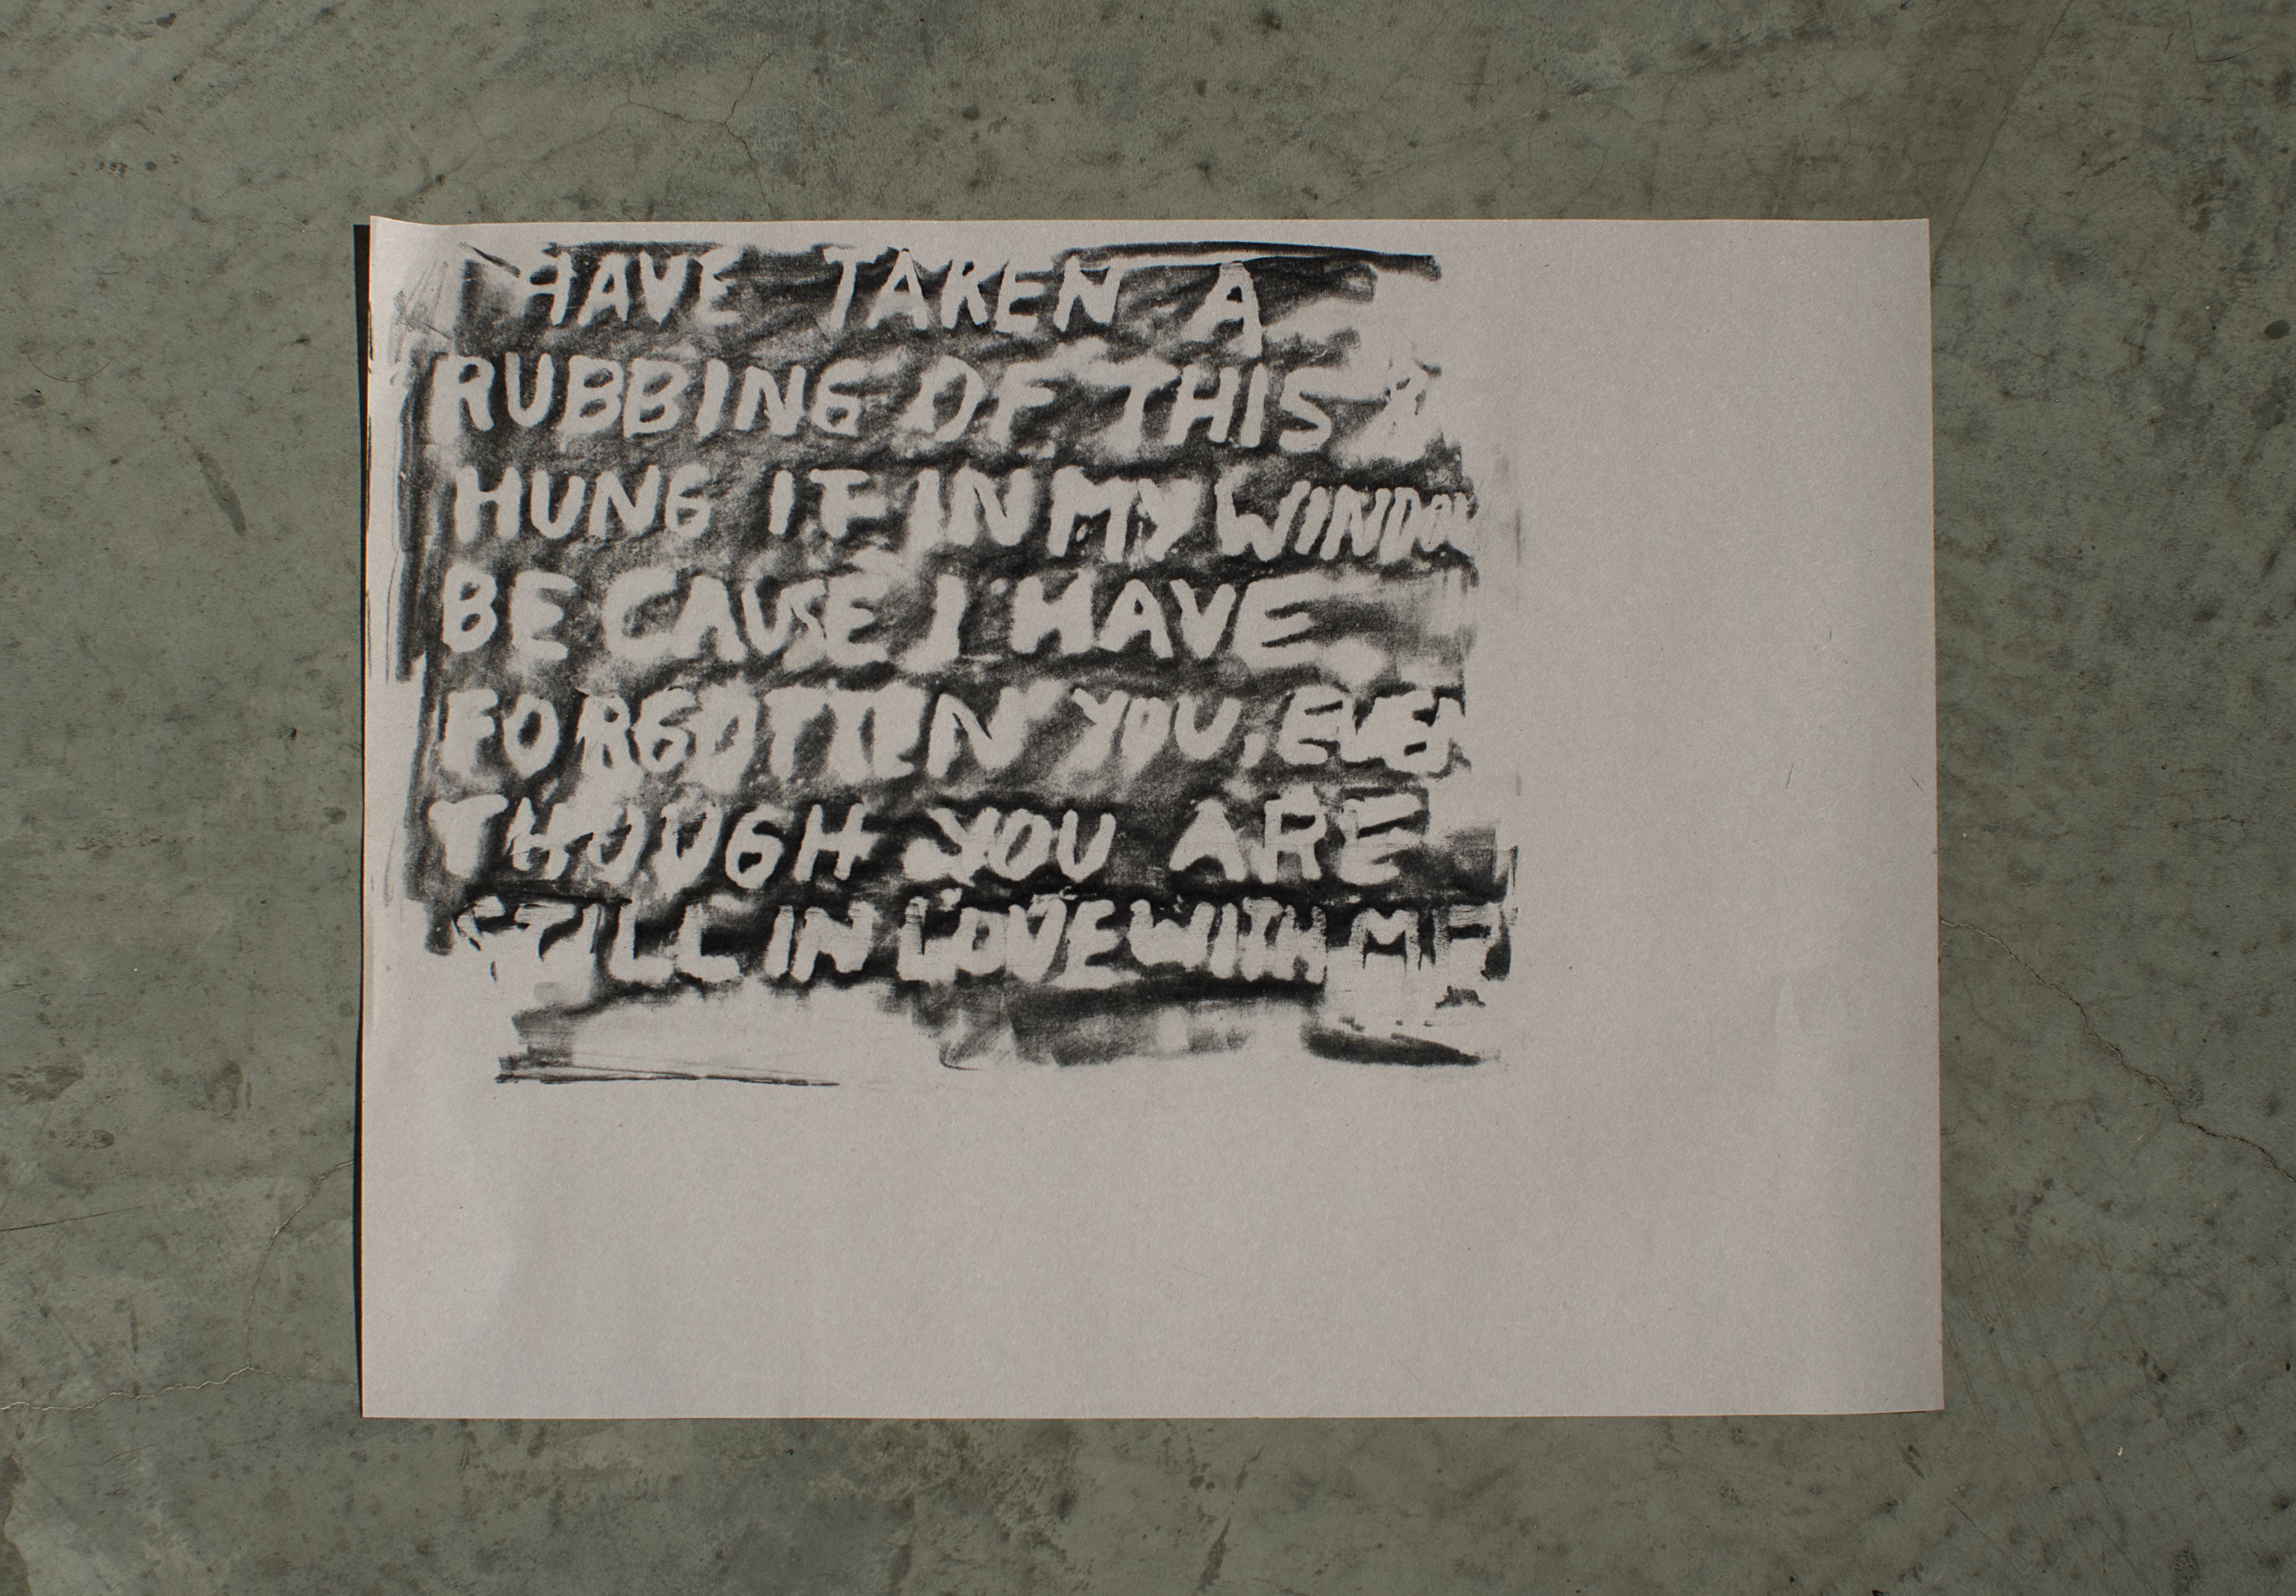 I HAVE TAKEN A
RUBBING OF THIS &
HUNG IT IN MY WINDOW
BECAUSE I HAVE
FORGOTTEN YOU, EVEN
THOUGH YOU ARE
STILL IN LOVE WITH ME